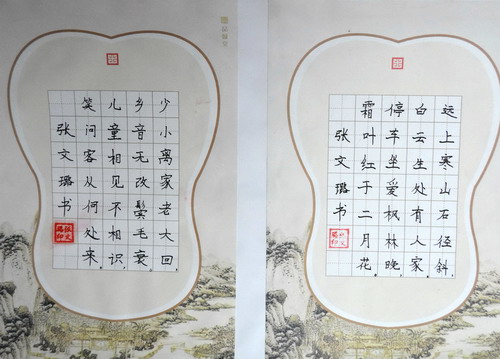 少小离家老大回，
乡音无改鬓毛衰。
儿童相见不相识，
笑问客从何处来。
张文璐书
远上寒山石径斜，
白云生处有人家
停车坐爱枫林晚，
霜叶红于二月花。
张文璐书